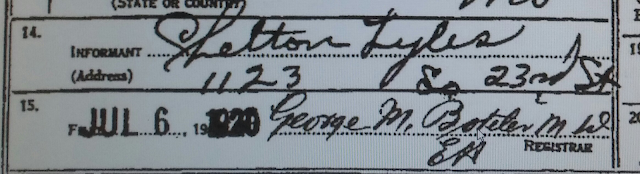 (STATE OR COUNTRY)
14.
INFORMANT Shelton Lyles
(Address) 1123 So 23rd St
15.
JUL 6, 1920 George M. Boteler M D
EH REGISTRAR